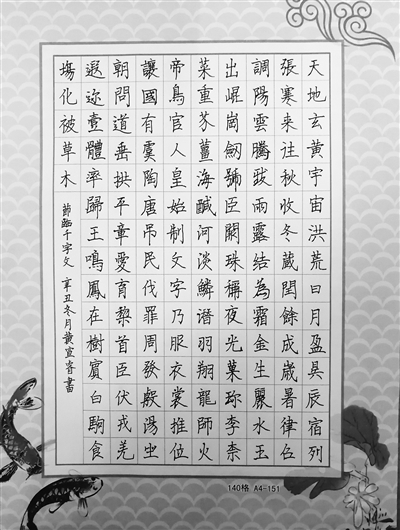 天地玄黃宇宙洪荒日月盈昃辰宿列
張寒来往秋收冬蔵閏餘成歲暑律呂
調陽雲騰致雨露結為霜金生麗水玉
出崐崗劒號臣闕珠稱夜光菓珎李柰
菜重芥薑海鹹河淡鱗潛羽翔龍師火
帝鳥官人皇始制文字乃服衣裳推位
讓國有虞陶唐弔民伐罪周發殷湯坐
朝問道垂拱平章愛育黎首臣伏戎羌
遐迩壹體率歸王鳴鳳在樹賓白駒食
塲化被草木
節臨千字文 辛丑冬月黃宣書
140格 A4-151